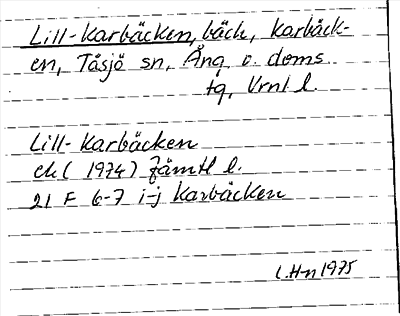 Lill-Karbäcken, bäck, Karbäck-
en, Tåsjö sn, Ång. v. doms
tg, Vrnl l.
Lill-Karbäcken
ek (1974) Jämtl l.
21 F 6-7 i-j Karbäcken
L.Hn 1975